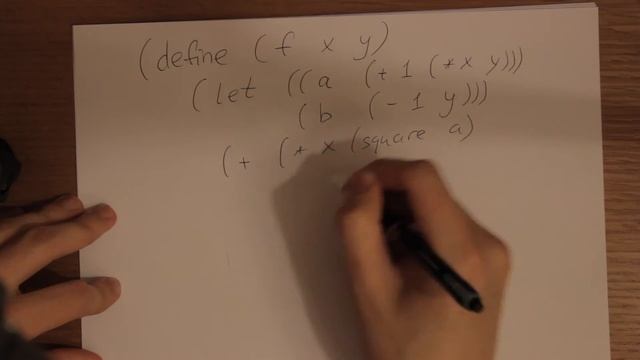 (define (f x y)
(let ((a (+ 1 (* x y)))
(b (- 1 y)))
(+ (* x (square a)